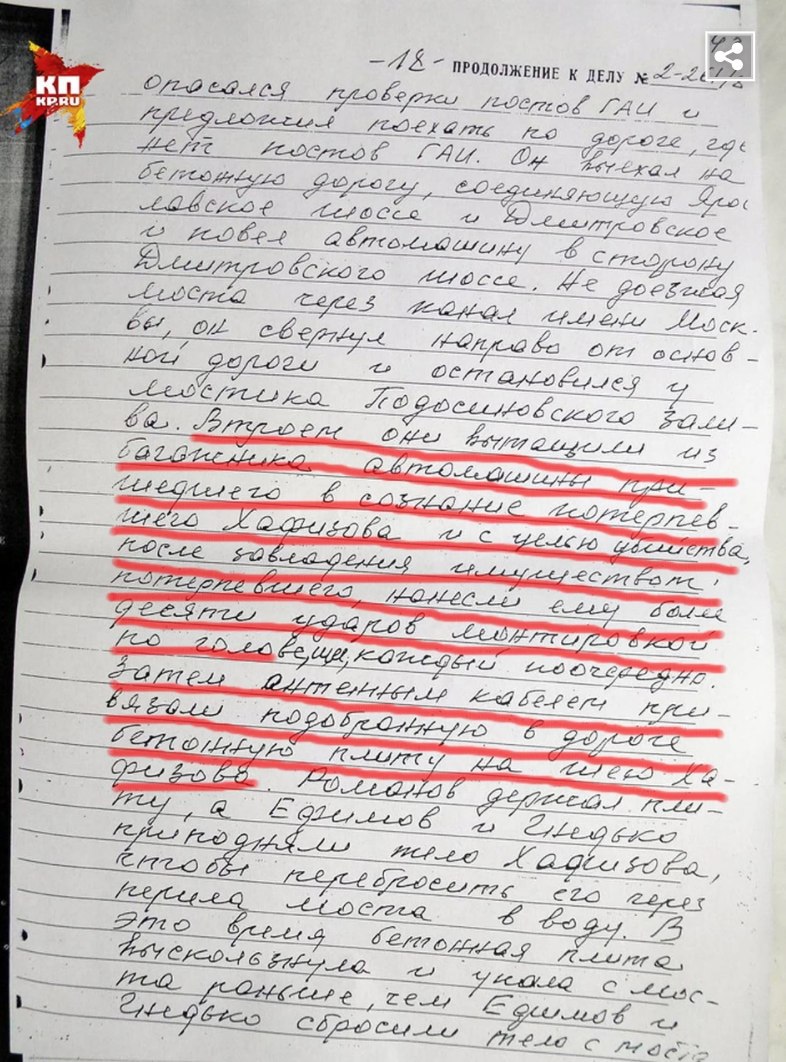 КП
KP.RU
-18- ПРОДОЛЖЕНИЕ К ДЕЛУ №
опасался проверки постов ГАИ и
предложил поехать по дороге, где
нет постов ГАИ. Он выехал на
бетонную дорогу, соединяющую Яро
славское шоссе и Дмитровское
и повел автомашину в сторону
Дмитровского шоссе. Не доезжая
моста через канал имени Моск-
вы, он свернул направо от основ-
ной дороги и остановился у
мостика Подосиновского зали-
ва. Втроем они вытащили из
багажника автомашины при-
шедшего в сознание потерпев-
шего Хафизова и с целью убийства,
после завладения имуществом
потерпевшего, нанесли ему более
десяти ударов монтировкой
по голове, каждый поочередно.
Затем антенным кабелем при-
вязали подобранную в дороге
бетонную плиту на шею Ха-
физова. Романов держал пли-
ту, а Ефимов и Гнидько
приподняли тело Хафизова,
чтобы перебросить его через
перила моста в воду. В
это время бетонная плита
выскользнула и упала с мос-
та раньше, чем Ефимов и
Гнидько сбросили тело с моста